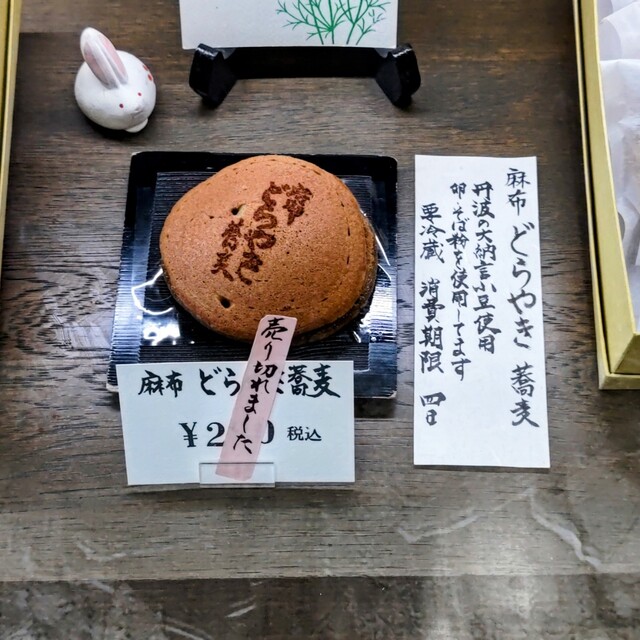 麻布
どらやき
蕎麦
売り切れました
麻布 どら 蕎麦
¥2 0 税込
麻布 どらやき 蕎麦
丹波の大納言小豆使用
卵・そば粉を使用してます
要冷蔵 消費期限 四日